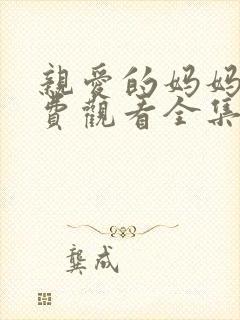 親愛的妈妈
費觀看全集
龔成